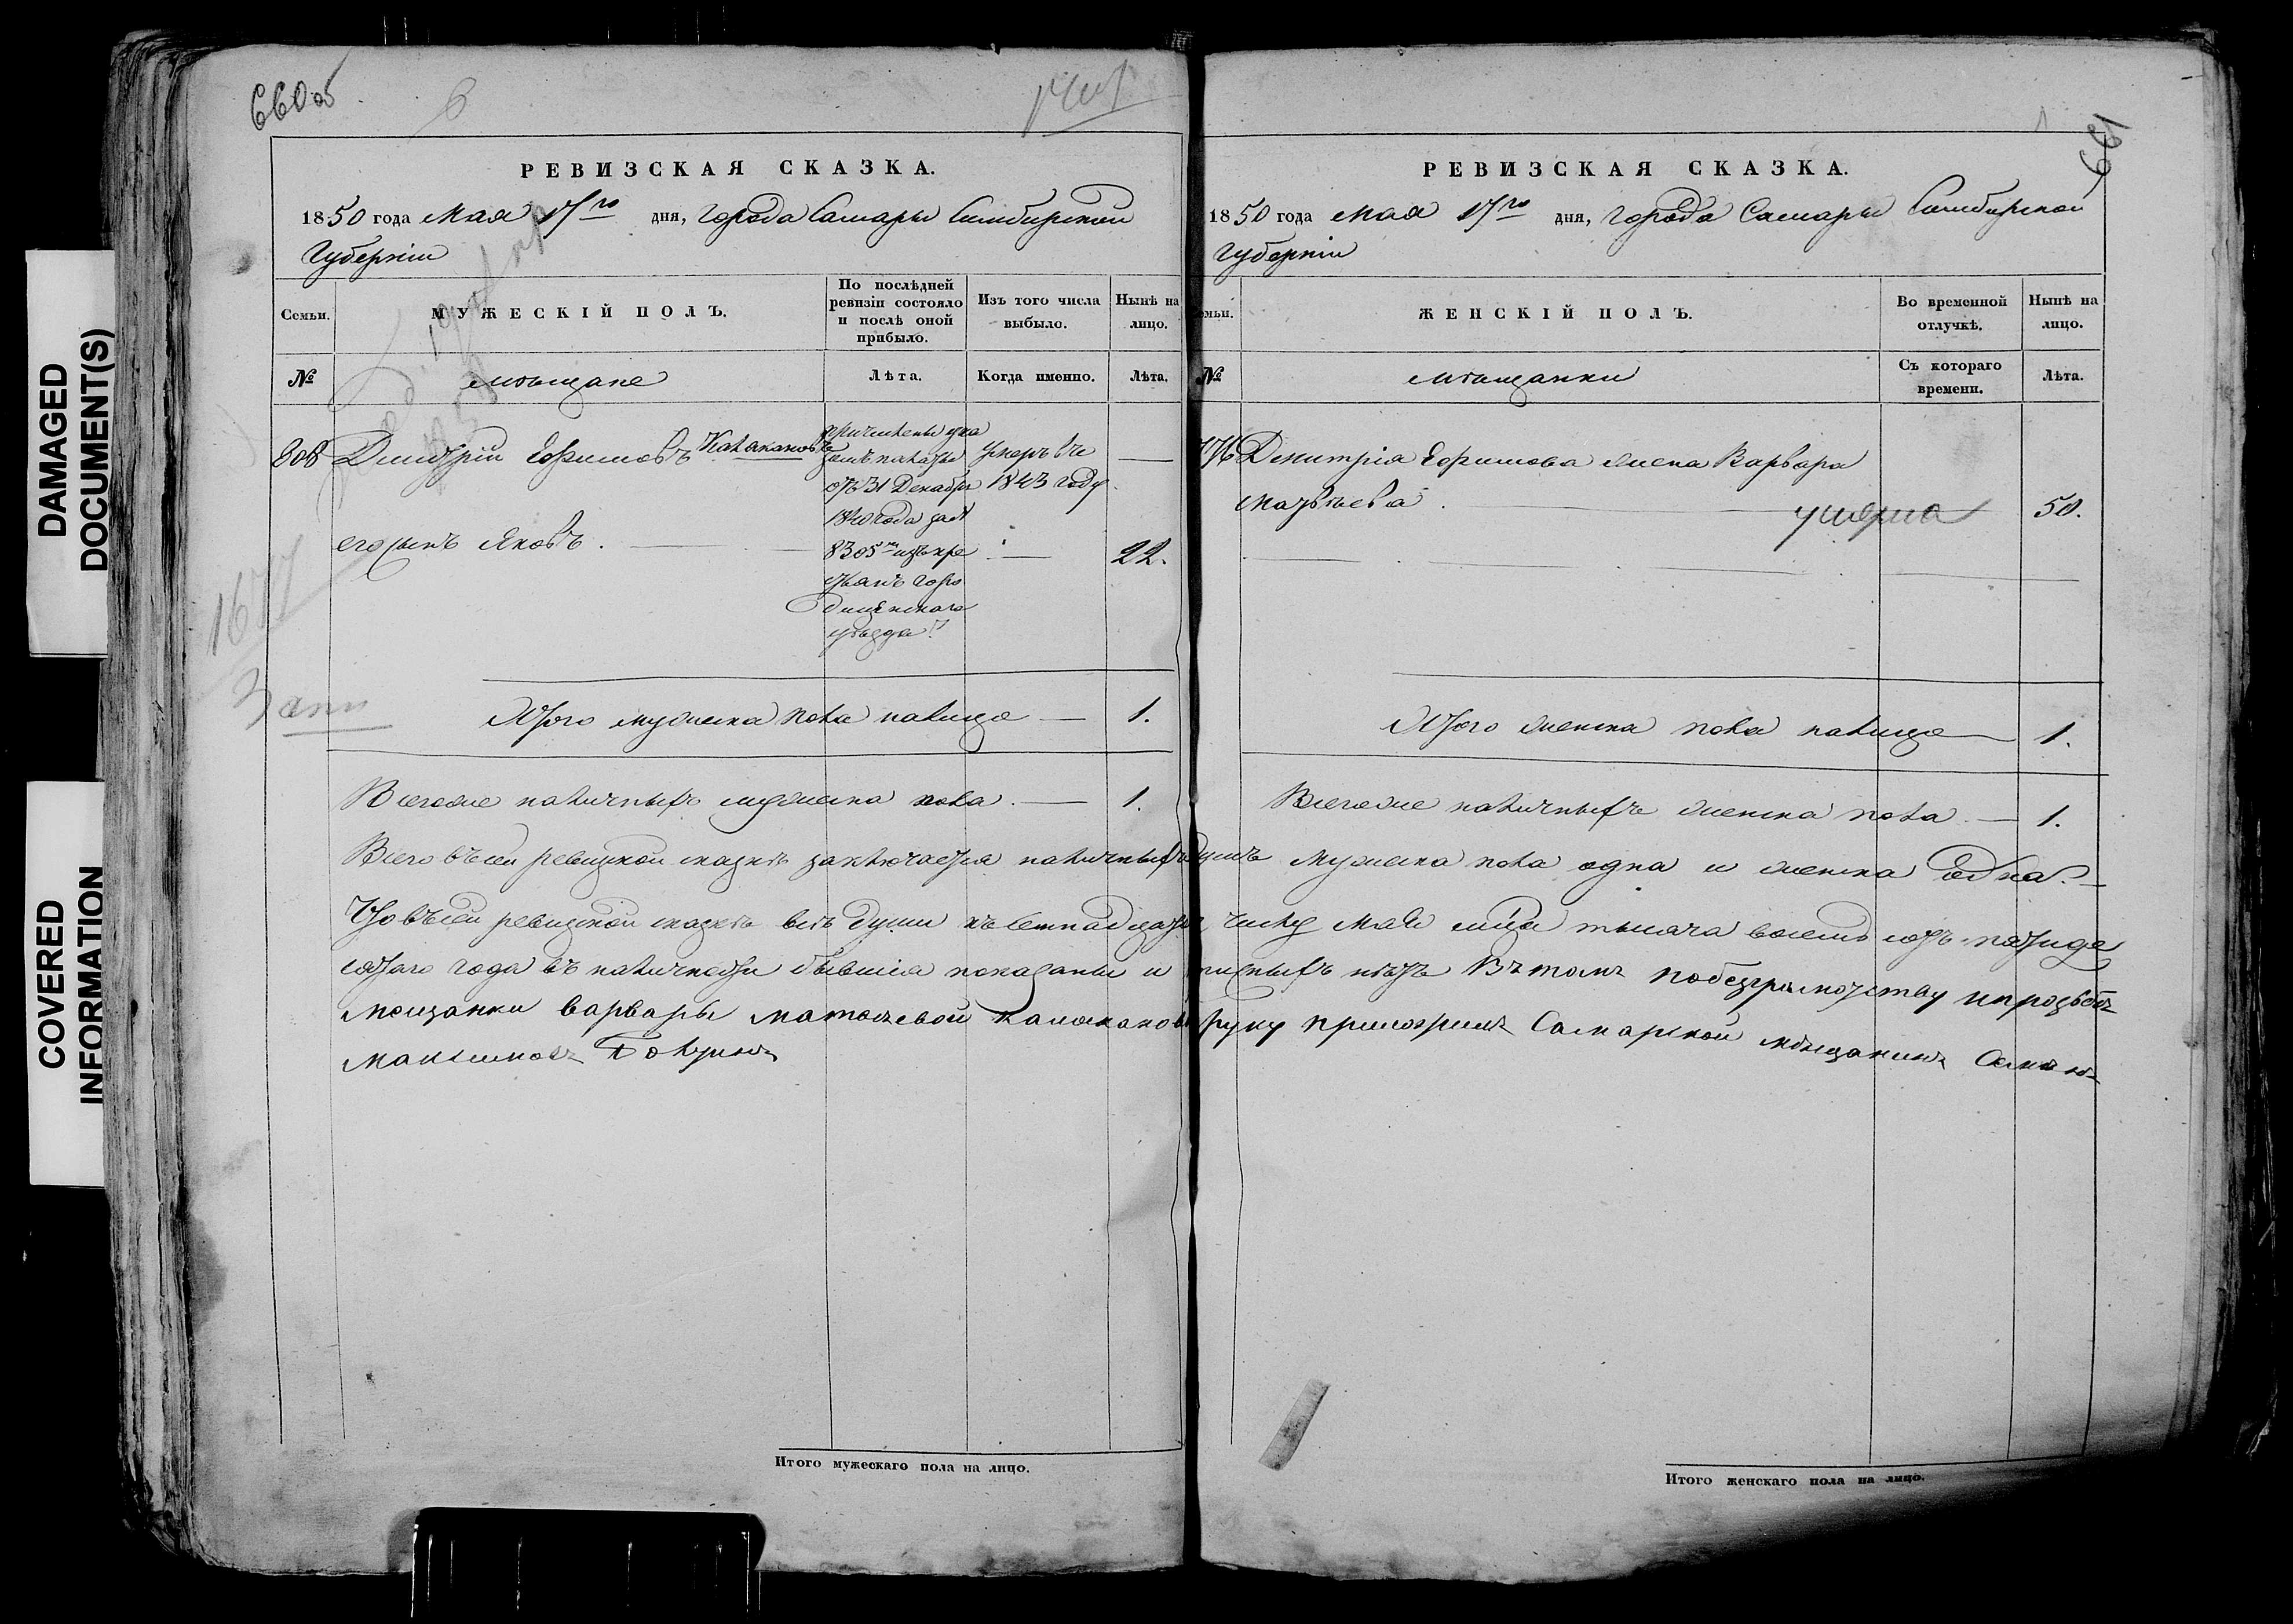 DAMAGED
DOCUMENT(S)
COVERED
INFORMATION
660об
6
РЕВИЗСКАЯ СКАЗКА.
1850 года Мая 17го дня, города Самары Симбирской
Губерніи
Семьи.
МУЖЕСКІЙ ПОЛЪ.
По послѣдней
ревизіи состояло
и послѣ оной
прибыло.
Изъ того числа
выбыло.
Нынѣ на
лицо.
№
мѣщане
Лѣта.
Когда именно.
Лѣта.
808
Дмитрій Ефимовъ
причислены ука
зомъ палаты
отъ 31 Декабря
1840 года за №
8305мъ изъ кре
стьянъ Горо
дищенскаго
уѣзда
умеръ въ
1843 году
—
его сынъ Яковъ. — — 22.
1677
Итого мужеска пола налицо — 1.
Всего же наличныхъ мужеска пола. — 1.
Итого мужескаго пола на лицо.
661
РЕВИЗСКАЯ СКАЗКА.
1850 года мая 17го дня, города Самары Симбирской
Губерніи
ЖЕНСКІЙ ПОЛЪ.
Во временной
отлучкѣ.
Нынѣ на
лицо.
№
мѣщанки
Съ котораго
времени.
Лѣта.
Дмитрія Ефимова жена Варвара
Матвѣева. — умерла 50.
Итого женска пола налицо — 1.
Всего же наличныхъ женска пола. — 1.
Всего въ сей ревизкой сказкѣ заключается наличныхъ душъ мужеска пола одна и женска одна. —
Что въ сей ревизкой сказкѣ всѣ души къ семнадцатому числу мая мѣсяца тысяча восемь сотъ пятиде
сятаго года въ наличности бывшія показаны и прописныхъ нѣтъ Въ томъ побезграмотству ипрозьбѣ
мещанки варвары матвевой руку приложилъ Самарской мѣщанинъ Семен
максимовъ
Итого женскаго пола на лицо.